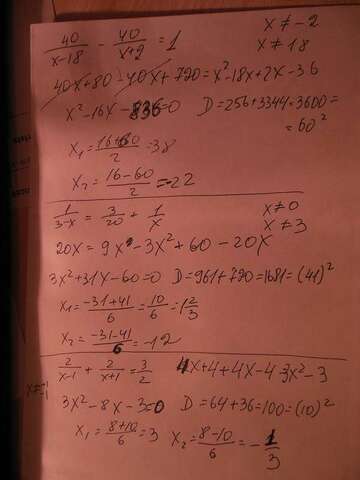 40/(x-18) - 40/(x+2) = 1    x ≠ -2
x ≠ 18
40x+80 - 40x + 720 = x² - 18x + 2x - 36
x² - 16x - 836 = 0    D = 256 + 3344 = 3600 =
= 60²
x₁ = (16+60)/2 = 38
x₂ = (16-60)/2 = -22
1/(3-x) = 3/20 + 1/x    x ≠ 0
x ≠ 3
20x = 9x - 3x² + 60 - 20x
3x² + 31x - 60 = 0    D = 961 + 720 = 1681 = (41)²
x₁ = (-31+41)/6 = 10/6 = 1 2/3
x₂ = (-31-41)/6 = -12
2/(x-1) + 2/(x+1) = 3/2    4x + 4 + 4x - 4 3x² - 3
x ≠ 1
-1
3x² - 8x - 3 = 0    D = 64 + 36 = 100 = (10)²
x₁ = (8+10)/6 = 3    x₂ = (8-10)/6 = -1/3